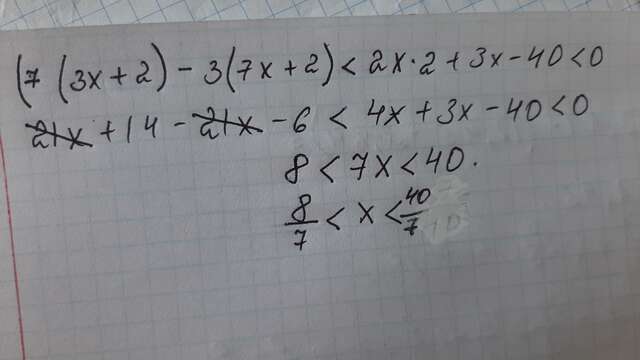 (7 (3x+2) - 3(7x+2) < 2x·2+3x-40<0
21x +14 - 21x - 6 < 4x+3x-40<0
8 < 7x < 40.
8/7 < x < 40/7